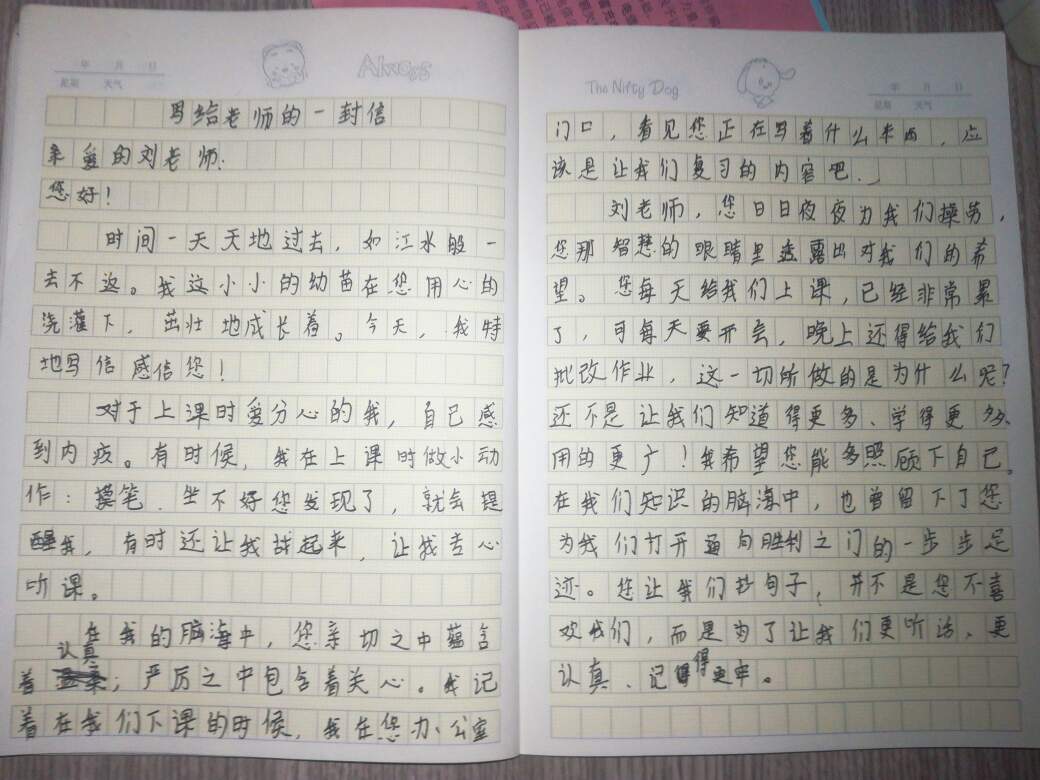 年 月 日
星期 天气
Always
写给老师的一封信
亲爱的刘老师:
您好!
时间一天天地过去,如江水般一
去不返。我这小小的幼苗在您用心的
浇灌下,茁壮地成长着。今天,我特
地写信感信您!
对于上课时爱分心的我,自己感
到内疚。有时候,我在上课时做小动
作:摸笔、坐不好您发现了,就会提
醒我,有时还让我站起来,让我专心
听课。
在我的脑海中,您亲切之中蕴含
着认真;严厉之中包含着关心。我记
着在我们下课的时候,我在您办公室
The Nifty Dog
年 月 日
星期 天气
门口,看见您正在写着什么东西,应
该是让我们复习的内容吧。
刘老师,您日日夜夜为我们操劳,
您那智慧的眼睛里透露出对我们的希
望。您每天给我们上课,已经非常累
了,可每天要开会,晚上还得给我们
批改作业,这一切所做的是为什么呢?
还不是让我们知道得更多、学得更多、
用的更广!我希望您能多照顾下自己。
在我们知识的脑海中,也曾留下了您
为我们打开通向胜利之门的一步步足
迹。您让我们抄句子,并不是您不喜
欢我们,而是为了让我们更听话、更
认真、记得更牢。